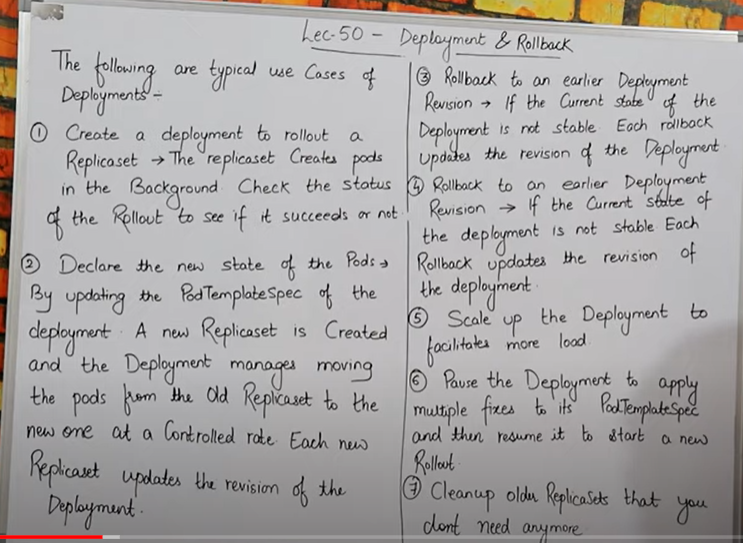 Lec-50 - Deployment & Rollback
The following are typical use Cases of
Deployments -
① Create a deployment to rollout a
Replicaset → The replicaset Creates pods
in the Background Check the status
of the Rollout to see if it succeeds or not.
② Declare the new state of the Pods →
By updating the PodTemplateSpec of the
deployment. A new Replicaset is Created
and the Deployment manages moving
the pods from the Old Replicaset to the
new one at a Controlled rate. Each new
Replicaset updates the revision of the
Deployment.
③ Rollback to an earlier Deployment
Revision → If the Current state of the
Deployment is not stable. Each rollback
updates the revision of the Deployment.
④ Rollback to an earlier Deployment
Revision → If the Current state of
the deployment is not stable Each
Rollback updates the revision of
the deployment.
⑤ Scale up the Deployment to
facilitates more load.
⑥ Pause the Deployment to apply
multiple fixes to its PodTemplateSpec
and then resume it to start a new
Rollout.
⑦ Cleanup older ReplicaSets that you
dont need anymore.